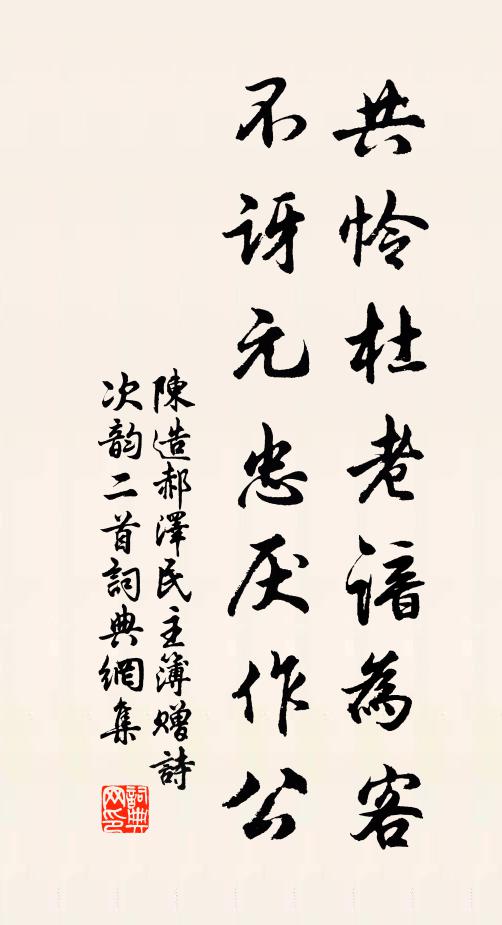 共怜杜老谙為客
不讶元忠厌作公
陳造郝澤民主簿赠詩
次韵二首詞典網集
詞典网印